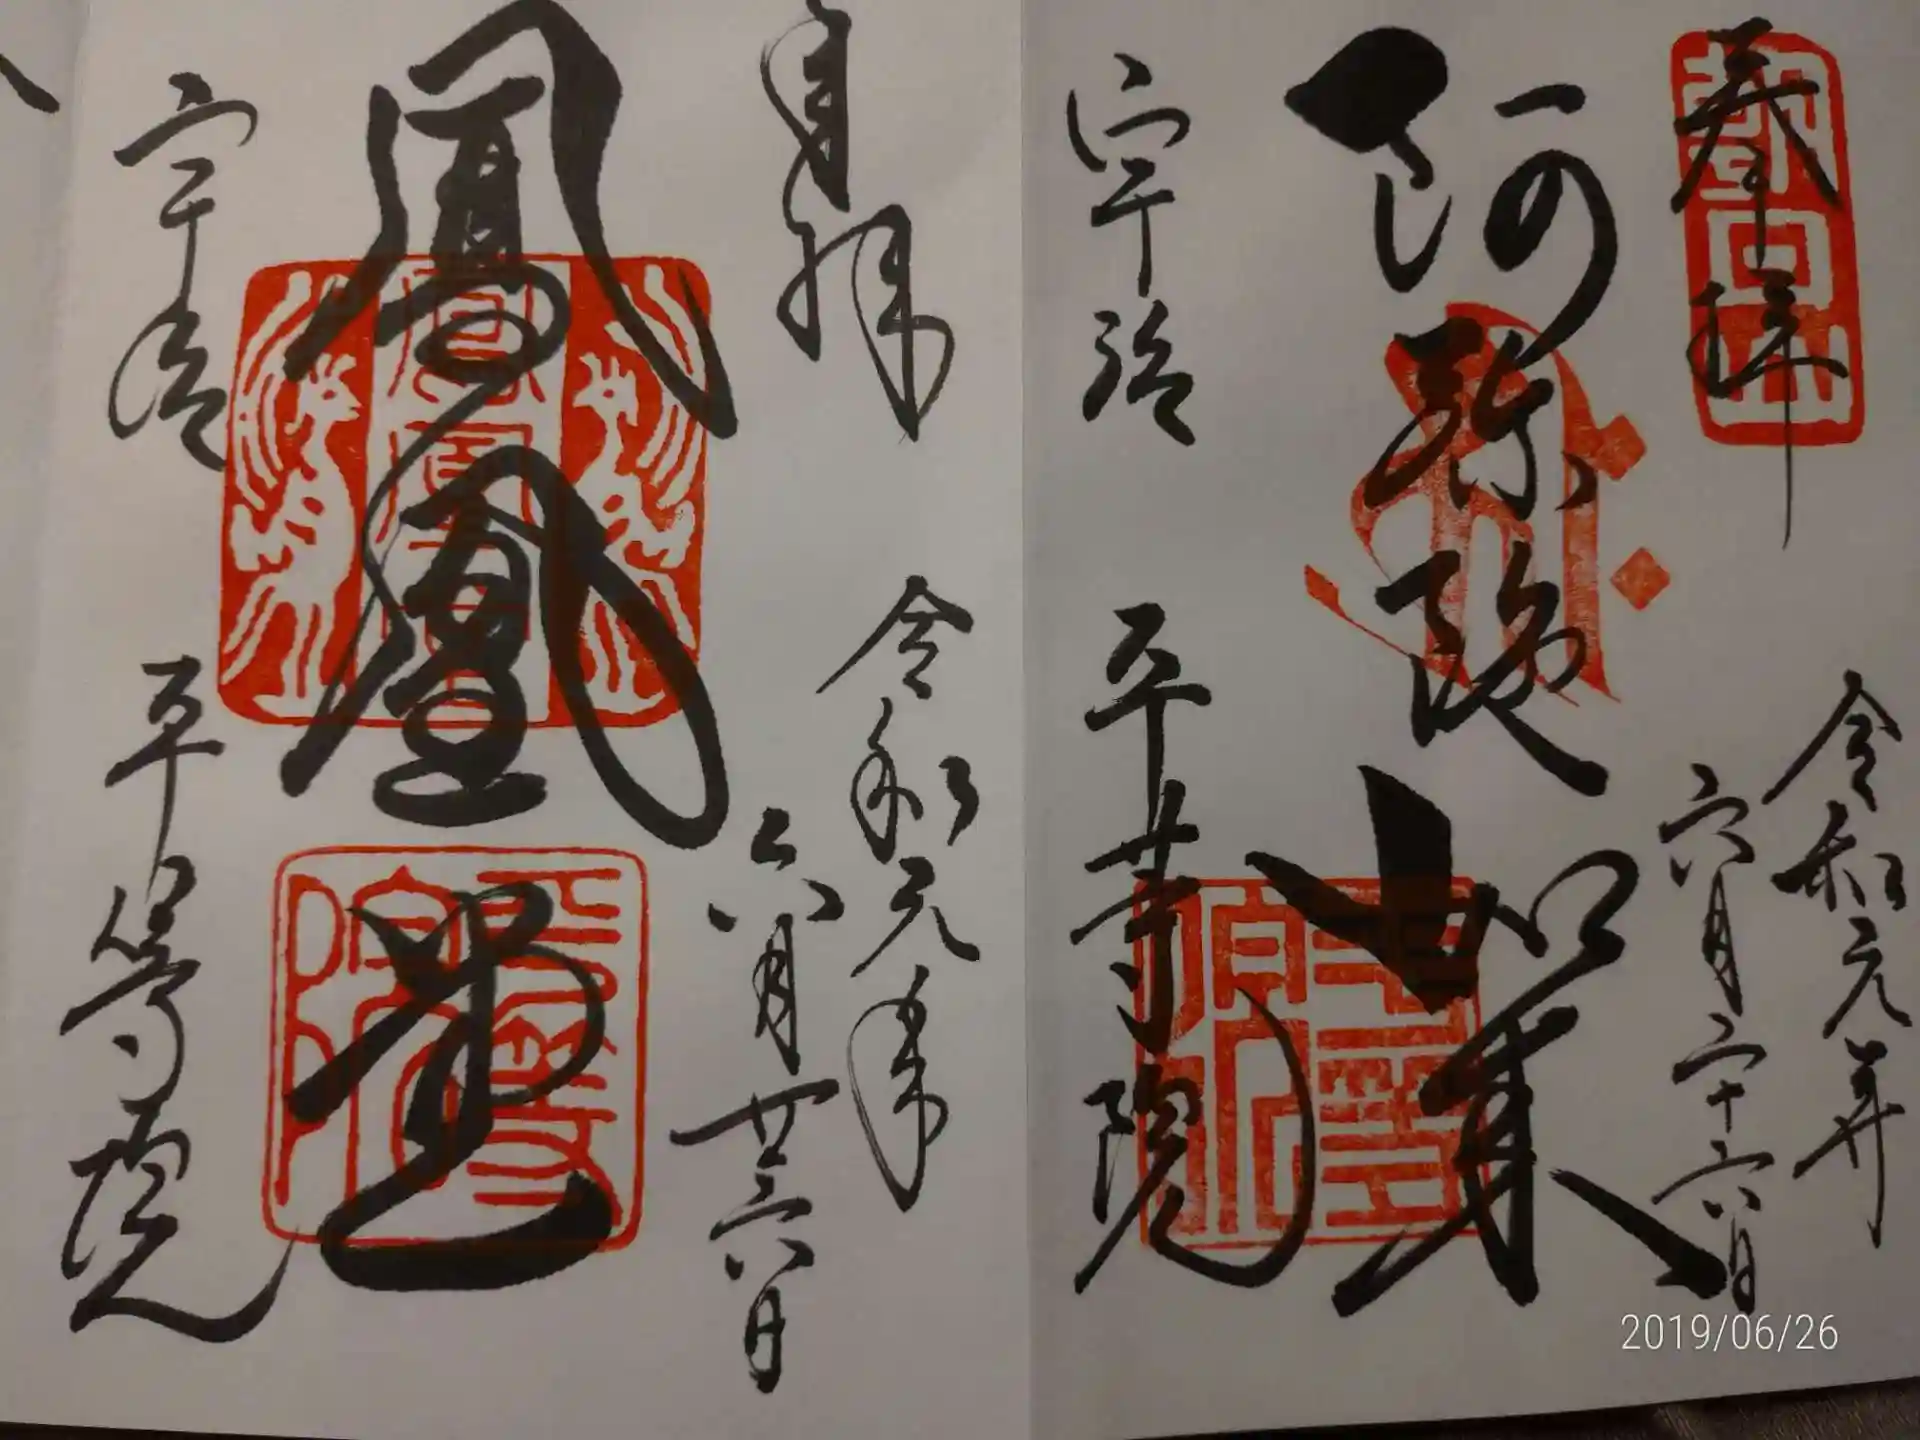 奉拝
令和元年
六月二十六日
阿弥陀如来
宇治
平等院
奉拝
令和元年
六月廿六日
鳳凰堂
宇治
平等院
平等院
平等院
2019/06/26